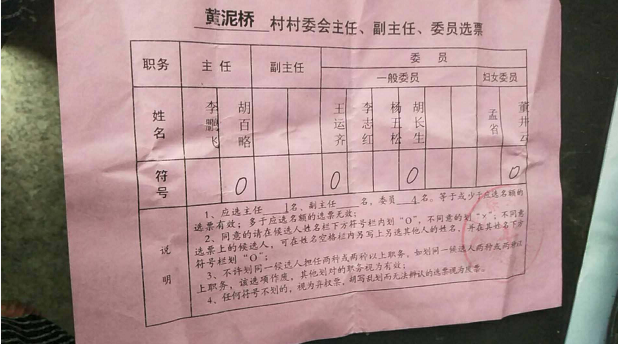 黄泥桥 村村委会主任、副主任、委员选票
职务 主任 副主任 委员
一般委员 妇女委员
姓名 李鹏飞 胡百略 王运齐 李志红 杨五松 胡长生 孟省 董井云
符号 O O O O
说明
1、应选主任 1名、副主任 名、委员 4名。等于或少于应选名额的
选票有效;多于应选名额的选票无效;
2、同意的请在候选人姓名栏下方符号栏内划“O”,不同意的划“×”;不同意
选票上的候选人,可在姓名空格栏内另写上另选其他人的姓名,并在其姓名下方
符号栏划“O”;
3、不许划同一候选人担任两种或两种以上职务,如划同一候选人两种或两种以
上职务,该选项作废,其他划对的职务视为有效;
4、任何符号不划的,视为弃权票,胡写乱划而无法辨认的选票视为废票。